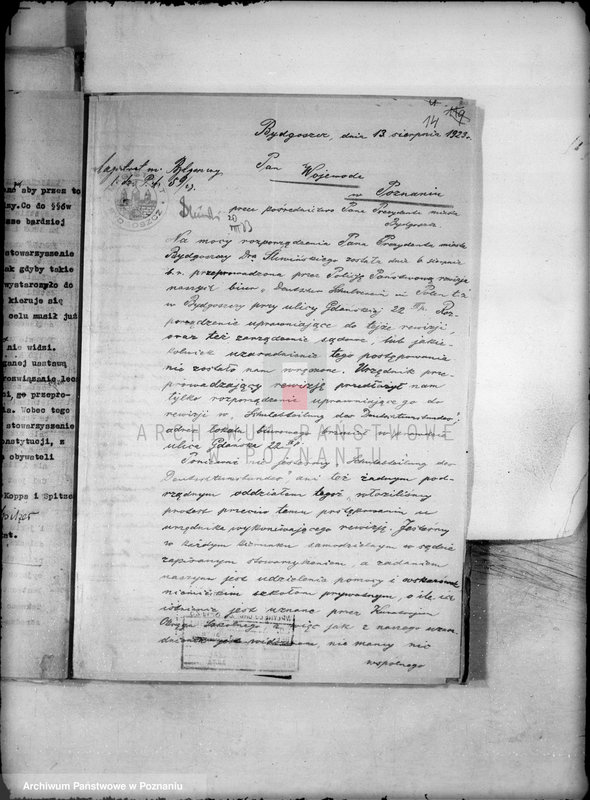 14
Bydgoszcz, dnia 13 sierpnia 1923 r.
Pan Wojewoda
w Poznaniu
przez pośrednictwo Pana Prezydenta miasta
Bydgoszcz
Na mocy rozporządzenia Pana Prezydenta miasta
Bydgoszczy Dra Śliwińskiego została dnia 6 sierpnia
b.r. przeprowadzona przez Policję Państwową rewizja
naszych biur: Deutscher Schulverein in Polen t.z.
w Bydgoszczy przy ulicy Gdańskiej 22 Roz-
porządzenie uprawniające do tejże rewizji,
oraz też zarządzenie sądowe, lub jakie-
kolwiek uzasadnienie tego postępowania
nie zostało nam wręczone. Urzędnik prze-
prowadzający rewizję przedłożył nam
tylko rozporządzenie uprawniające go do
rewizji w. Schulabteilung des Deutschtumsbundes,
adres lokalu biurowego
ulica Gdańska 22
Ponieważ nie jesteśmy Schulabteilung des
Deutschtumsbundes, ani też żadnym pod-
rządnym oddziałem tegoż, włożyliśmy
protest przeciw temu postępowaniu u
urzędnika wykonywującego rewizję. Jesteśmy
w każdym kierunku samodzielnym w sądzie
zapisanym stowarzyszeniem, a zadaniem
naszym jest udzielenie pomocy i wskazówek
niemieckim szkołom prywatnym, o ile ich
istnienie jest uznane przez Kuratorjum
Okręgu Szkolnego, a więc jak z naszego
nie mamy nic
wspólnego
aby przez to
Co do §§ów
bardziej
stowarzyszenie
jak gdyby takie
wystarczyło do
kieruje się
celu musiał już
nie widzi.
ustawą
rozwiązanie
przepro-
Wobec tego
stowarzyszenie
konstytucji, z
obywateli
Koppa i Spitze
ARCHIWUM PAŃSTWOWE
W POZNANIU
Archiwum Państwowe w Poznaniu